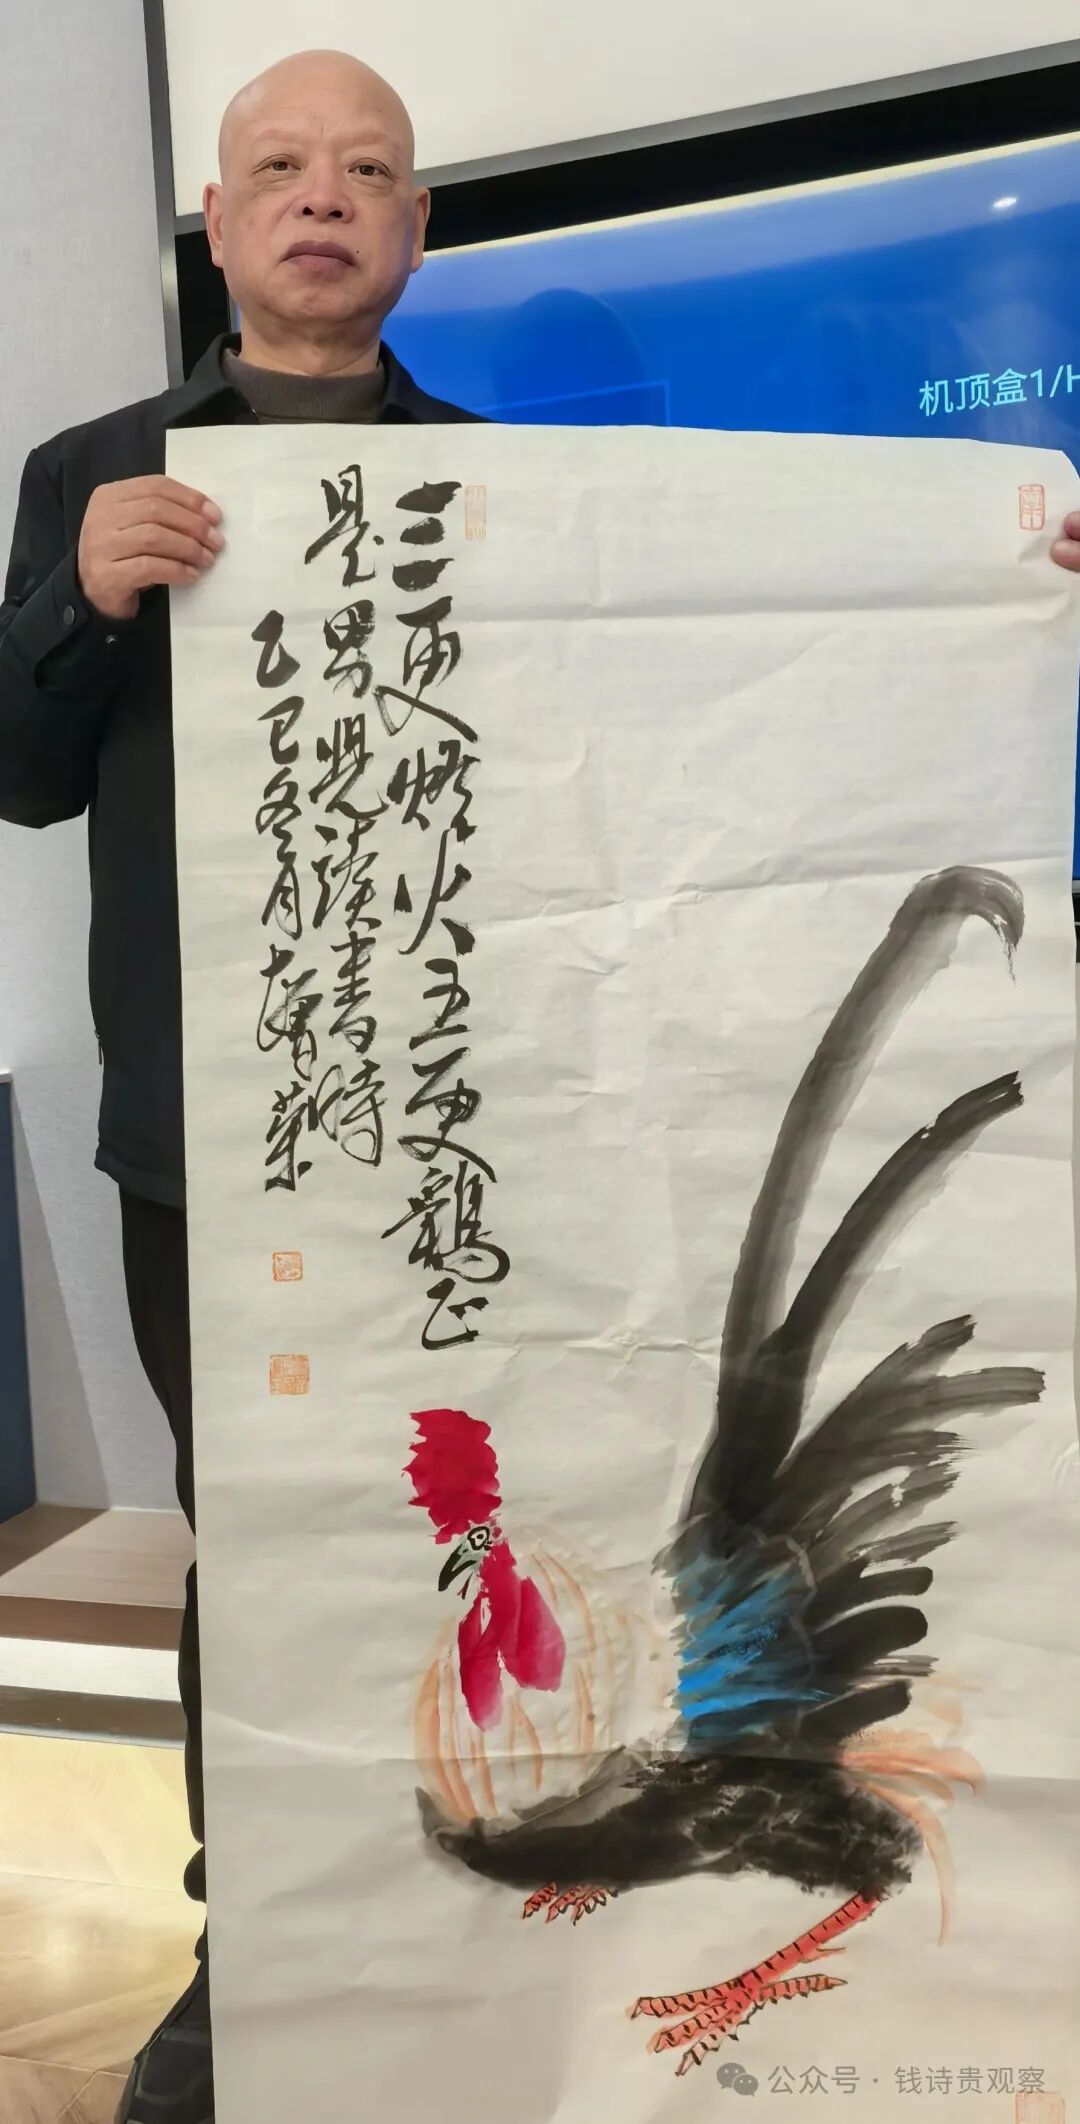 机顶盒1/H
三更燈火五更鷄正
是男児讀書時
乙巳冬月
公众号·钱诗贵观察